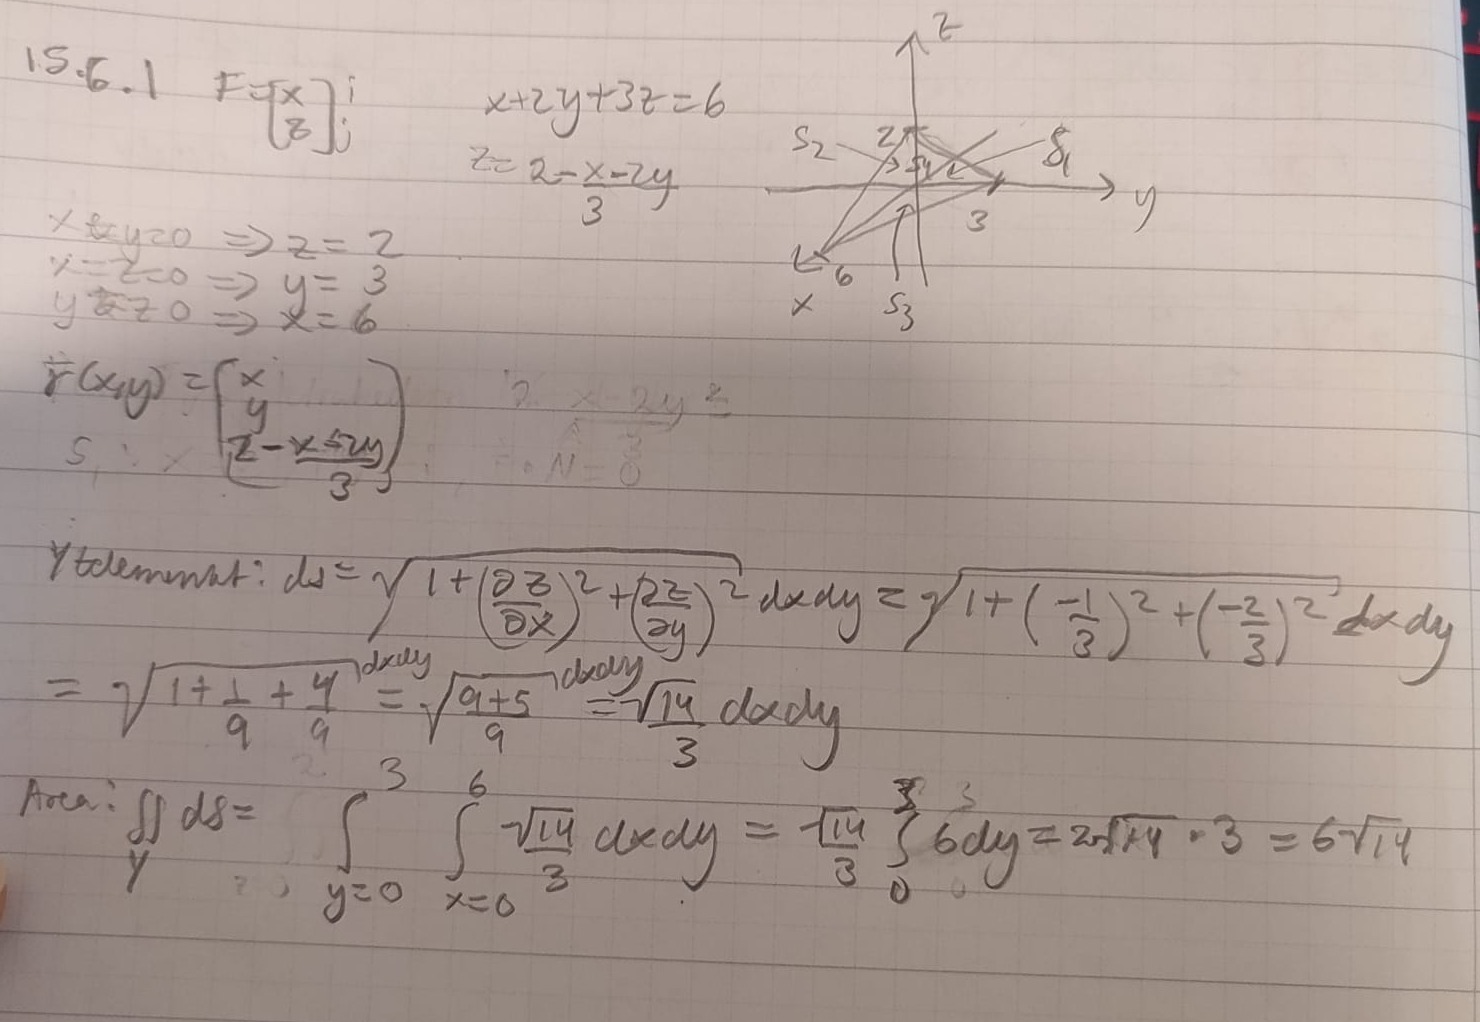 15.6.1 F = [x z] i j x+2y+3z=6
z = 2 - x-2y / 3
x & y=0 => z = 2
x=z=0 => y = 3
y & z 0 => x = 6
z
S2 2 S1
y
3
6
x S3
r̄(x,y) = (x
y
2 - x+2y / 3)
S1: x
2 x-2y
N =
Ytelement: ds = √(1 + (∂z/∂x)² + (∂z/∂y)²) dxdy = √(1 + (-1/3)² + (-2/3)²) dxdy
= √(1 + 1/9 + 4/9) dxdy = √(9+5/9) dxdy = √14/3 dxdy
Area: ∬_Y ds = ∫_{y=0}^{3} ∫_{x=0}^{6} √14/3 dxdy = √14/3 ∫_0^3 6dy = 2√14 · 3 = 6√14